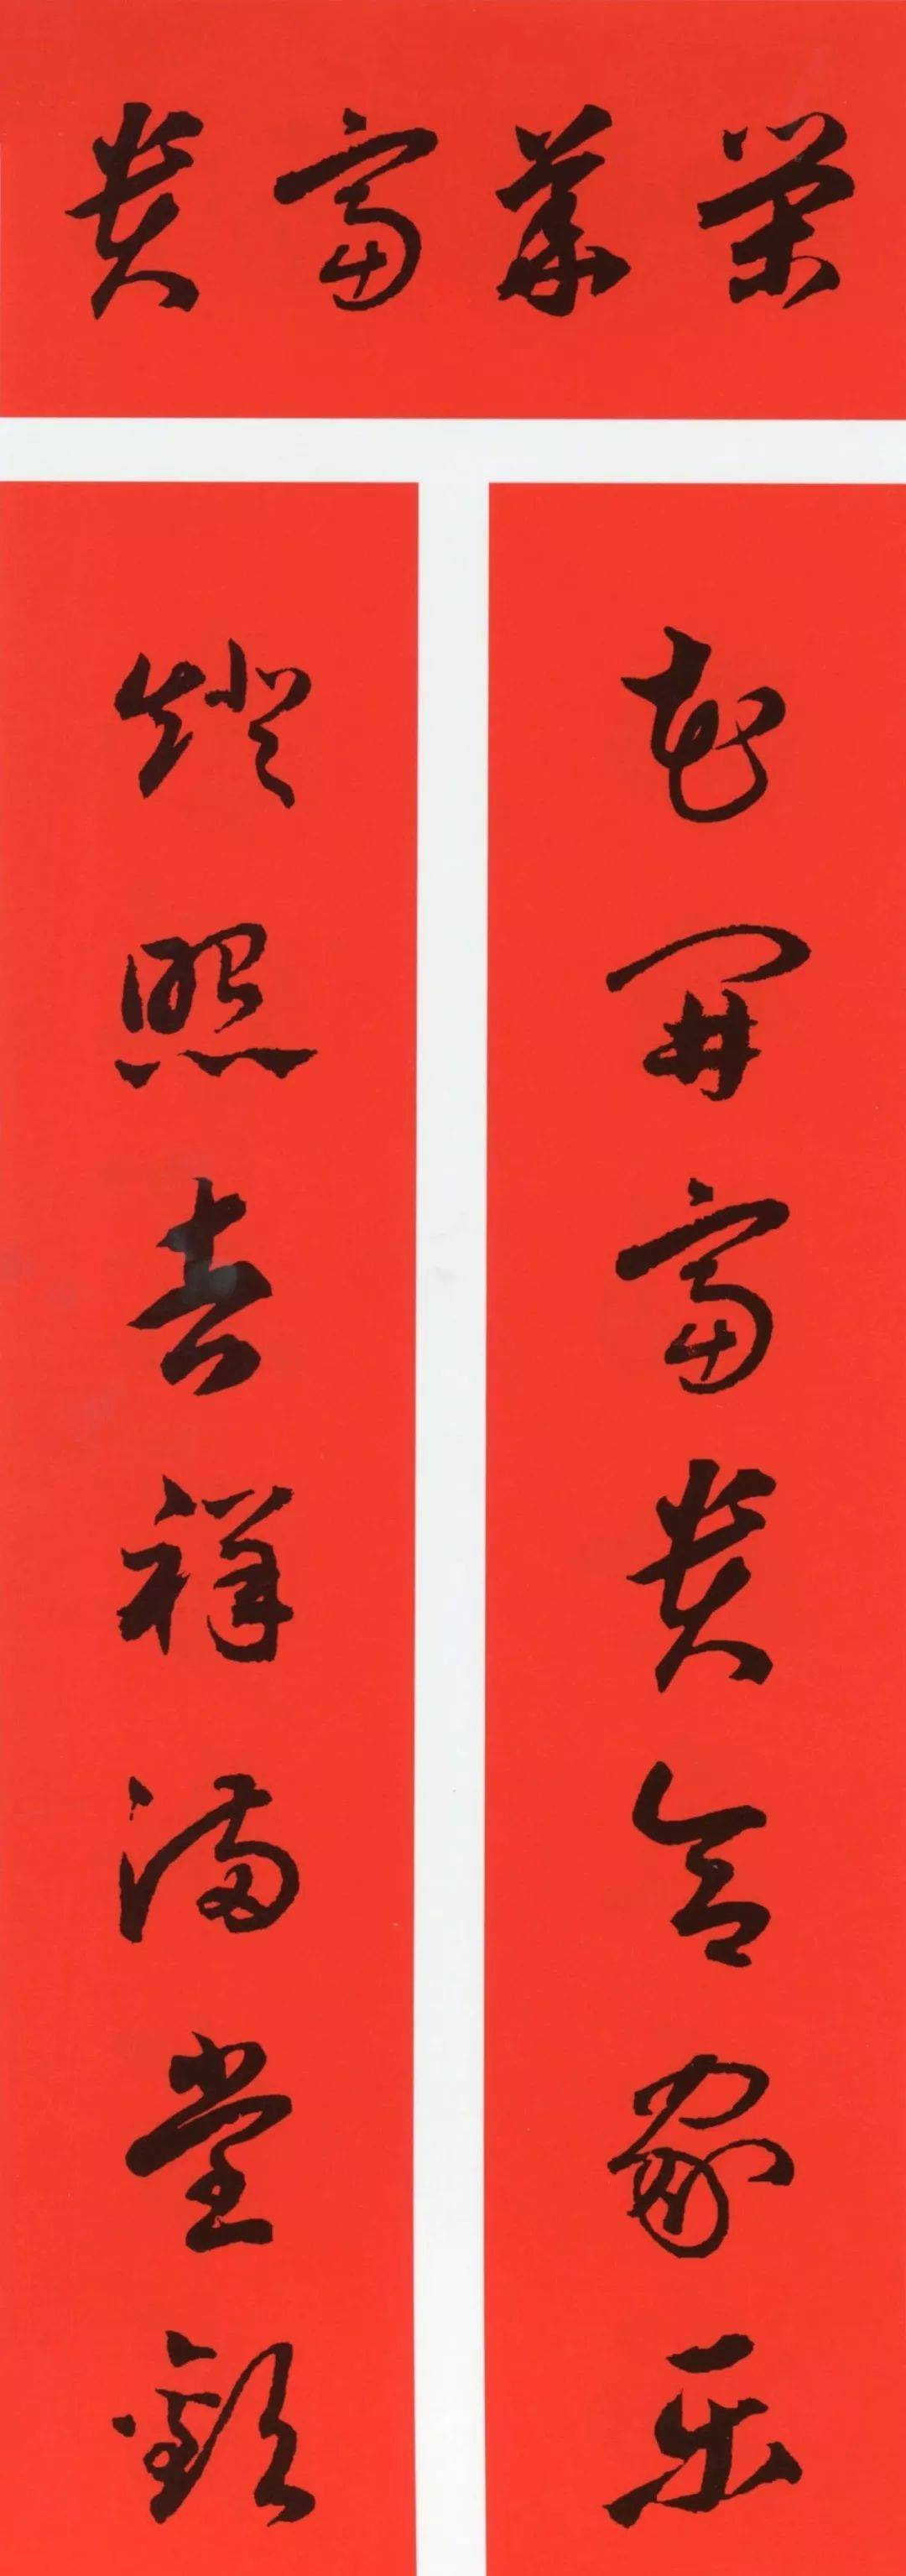 荣华富贵
花开富贵合家乐
灯照吉祥满堂欢